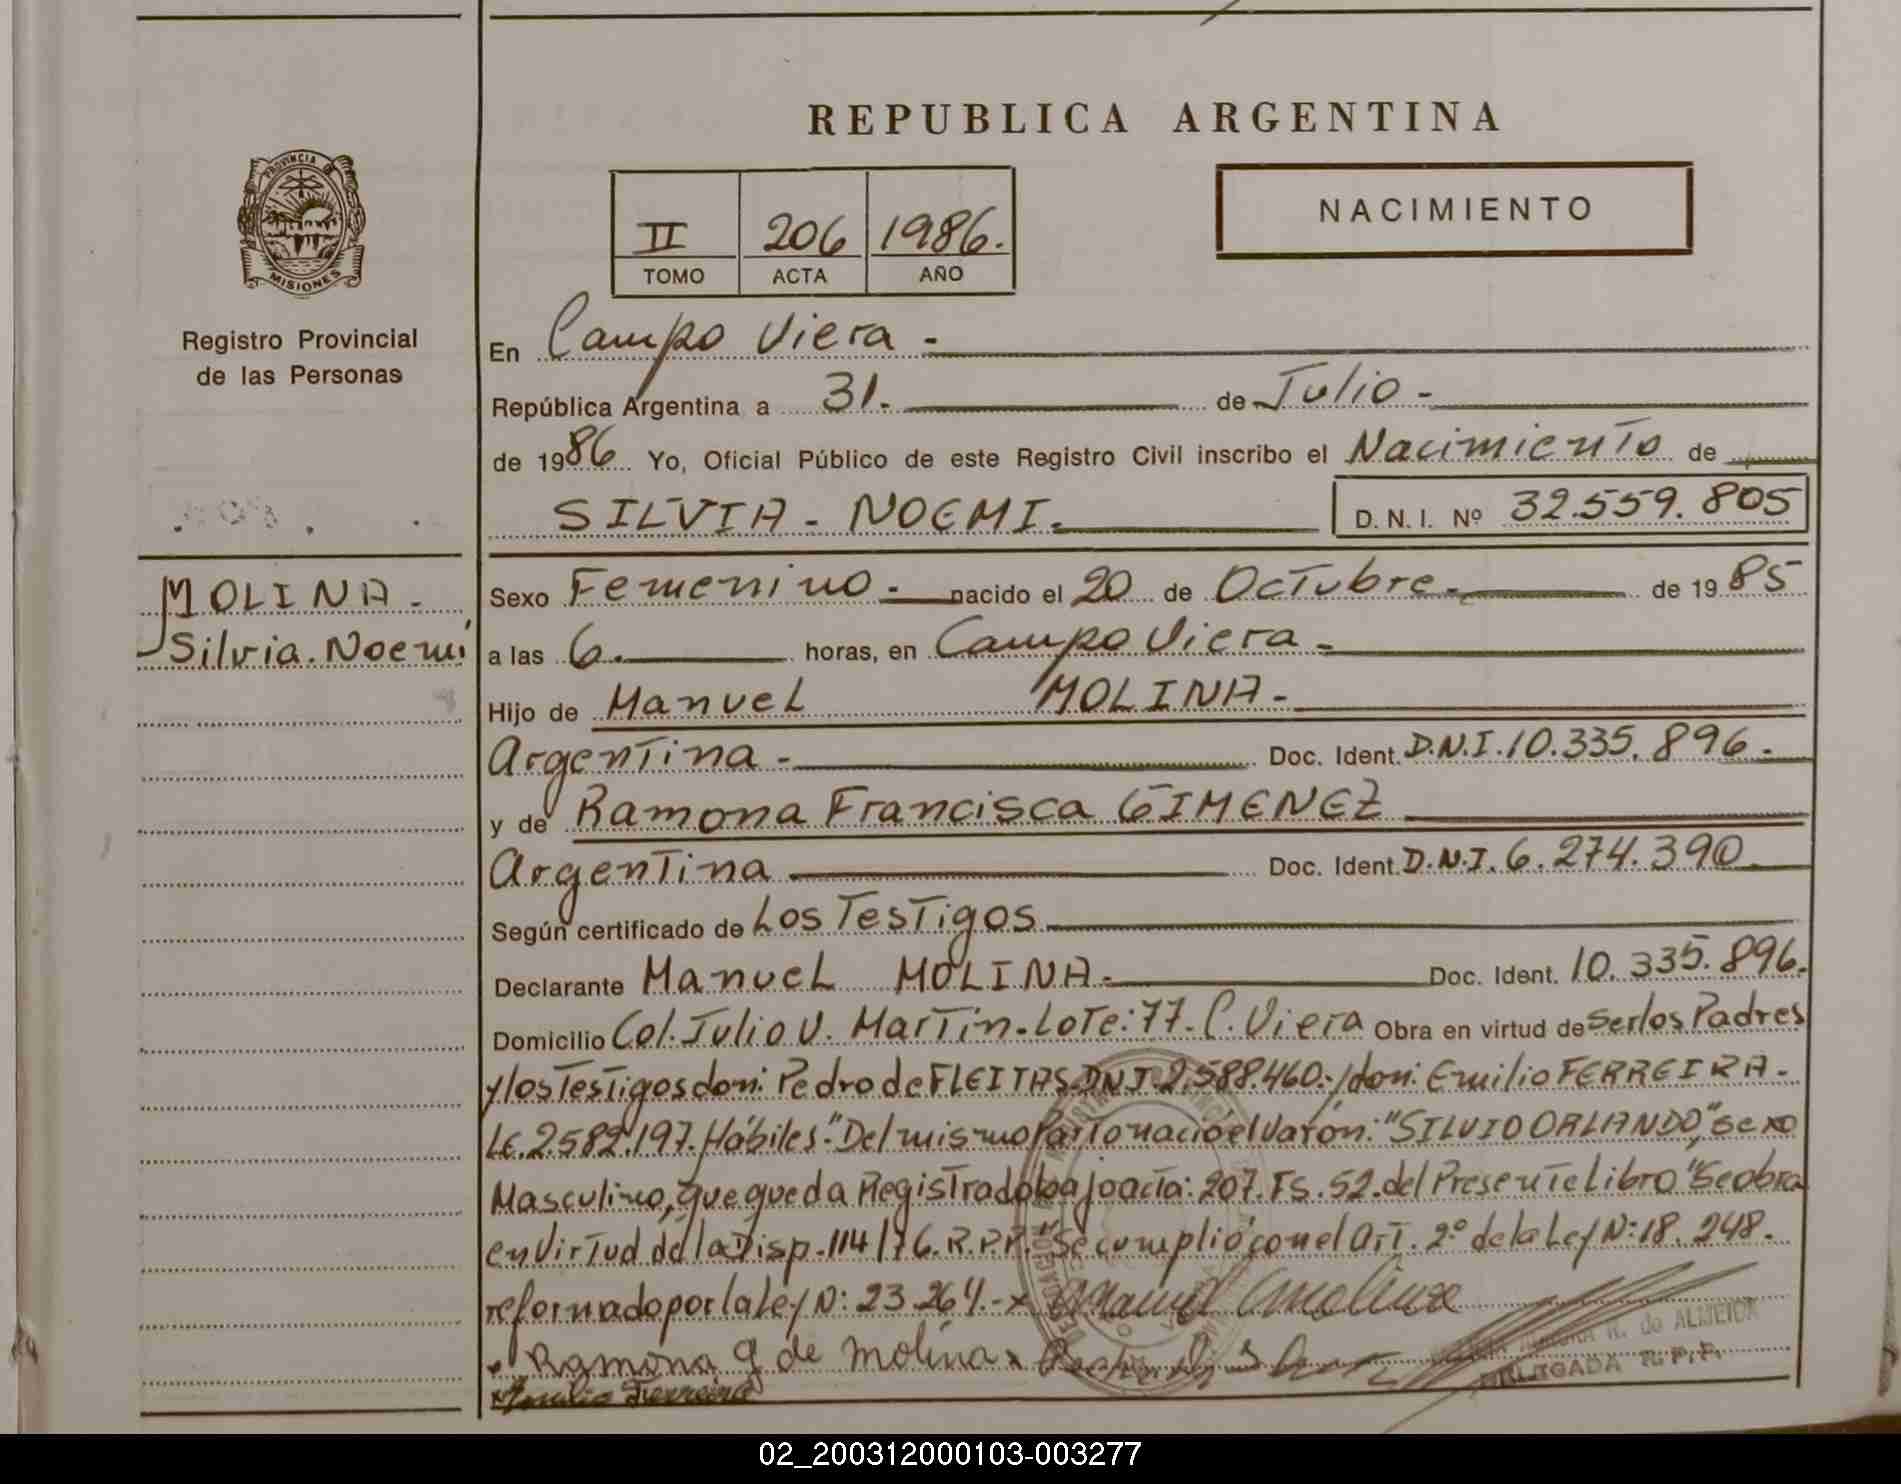 REPUBLICA ARGENTINA
NACIMIENTO
II 206 1986.
TOMO ACTA AÑO
PROVINCIA DE
MISIONES
Registro Provincial
de las Personas
En Campo Viera -
República Argentina a 31. de Julio -
de 1986 Yo, Oficial Público de este Registro Civil inscribo el Nacimiento de
SILVIA - NOEMI. D. N. I. Nº 32.559.805
MOLINA -
Silvia. Noemí
Sexo Femenino - nacido el 20 de Octubre. de 1985
a las 6. horas, en Campo Viera -
Hijo de Manuel MOLINA -
Argentina - Doc. Ident. D.N.I. 10.335.896 -
y de Ramona Francisca GIMENEZ
Argentina Doc. Ident. D.N.I. 6.274.390
Según certificado de Los Testigos
Declarante Manuel MOLINA - Doc. Ident. 10.335.896.
Domicilio Col. Julio U. Martín. Lote: 77. C. Viera Obra en virtud de ser los Padres
y los Testigos don: Pedro de FLEITAS. DNI. 2.588.460.-/don: Emilio FERREIRA -
LE. 2.582.197. Hábiles - "Del mismo Parto nació el Varón: "SILVIO ORLANDO", sexo
Masculino, que queda Registrado bajo acta: 207. Fs. 52. del Presente Libro "Se obra
en Virtud de la Disp. 114/76. R.P.P. Se cumplió con el Art. 2º de la Ley N: 18.248.
reformado por la Ley N: 23.264.- x Manuel Molina
Ramona G de Molina x
x Emilio Ferreira
R. de ALMEIDA
DELEGADA R.P.P.
02_200312000103-003277